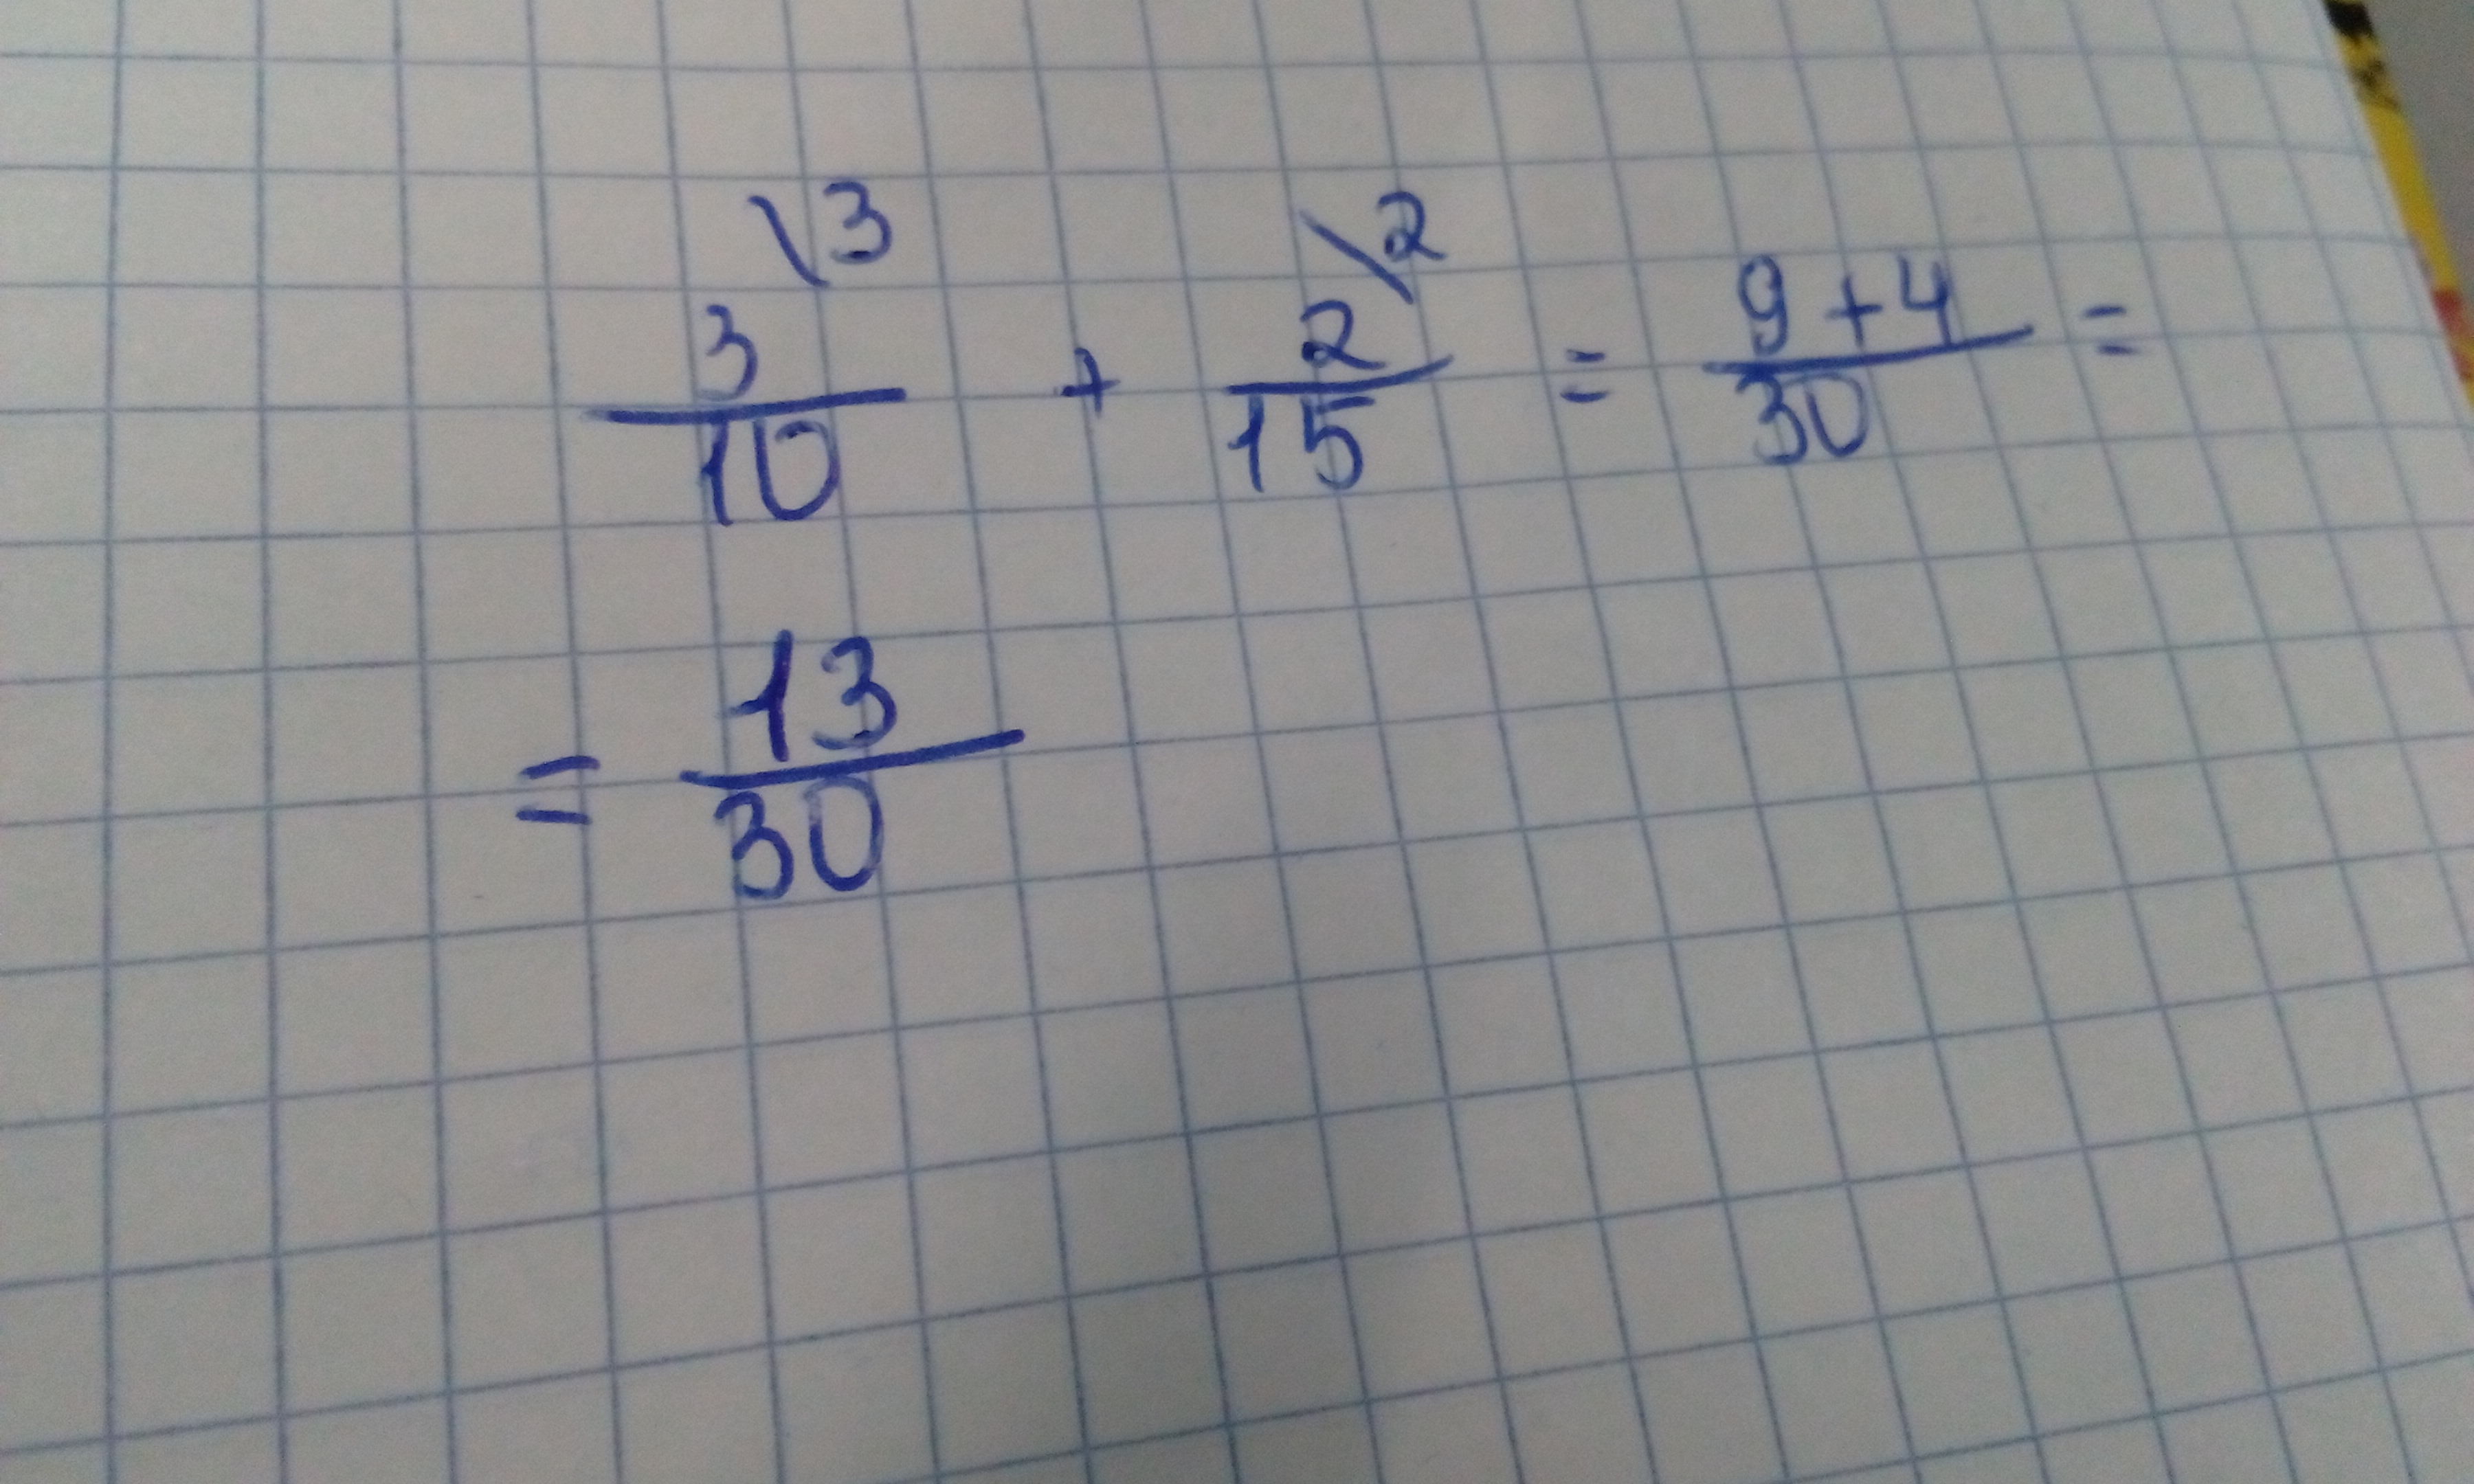 3/10 \3 + 2/15 \2 = 9+4/30 =
= 13/30